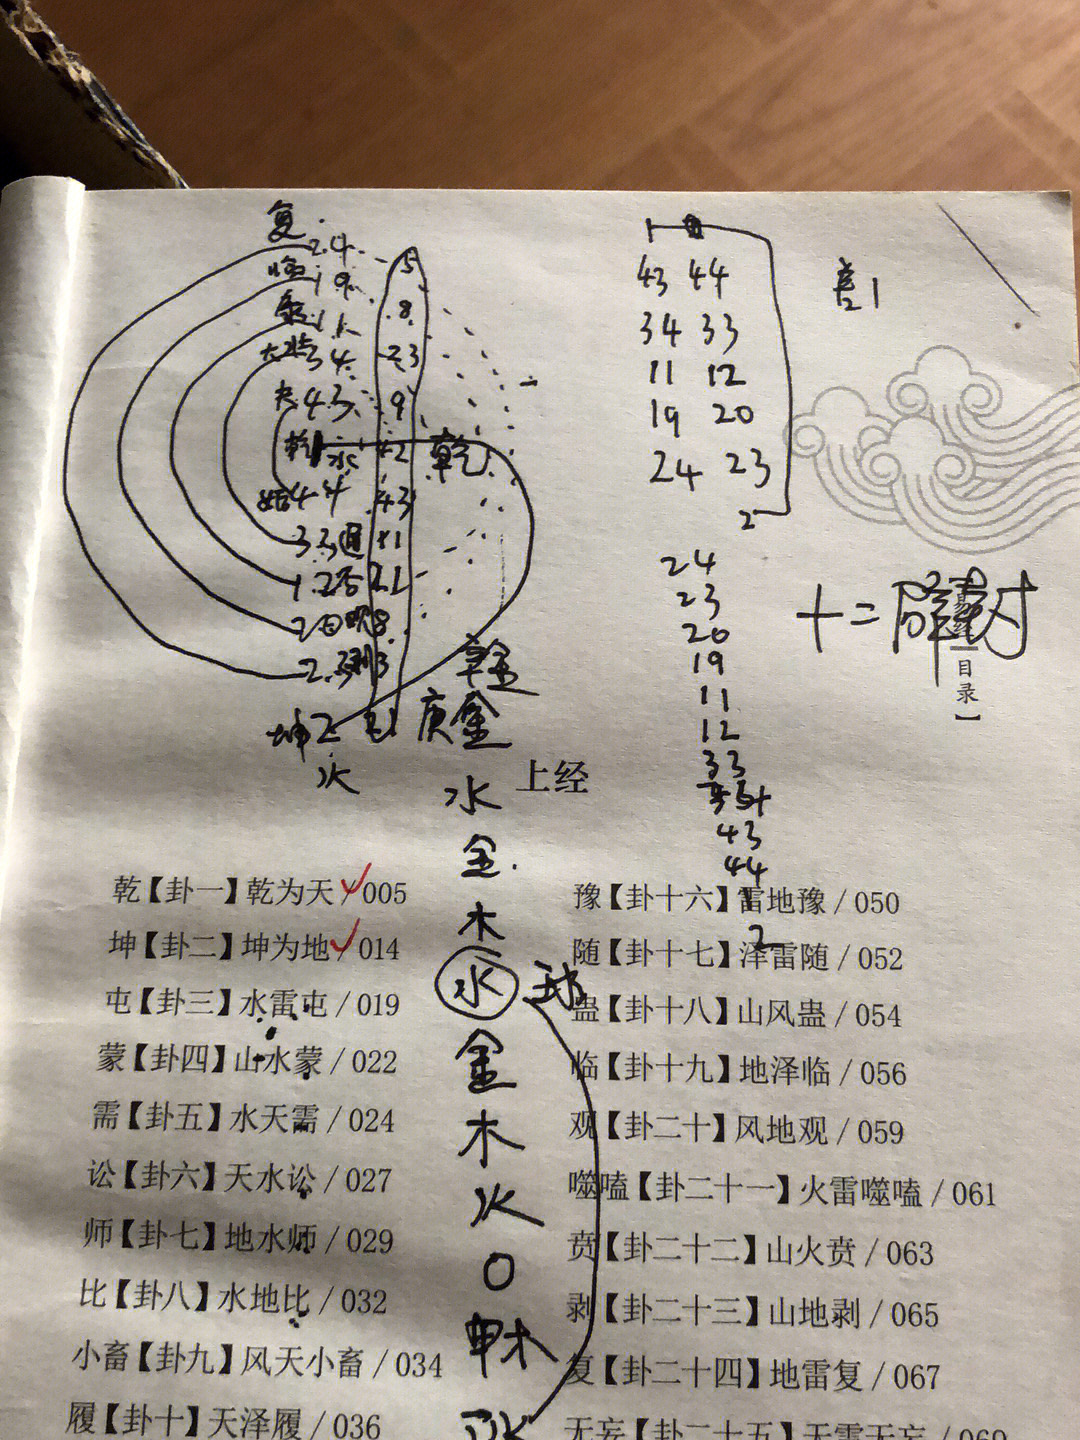 复
24 5
临 19 8
泰 11 23
大壮 34 9
夬 43 42
乾 1 水 乾
姤 44 43
33 遁
12 否 21
20 观 8
23 剥 3
坤 2
水
庚金
水
金
木
水
金
木
水
0
甲木
1
43 44
34 33
11 12
19 20
24 23
2
24
23
20
19
11
12
33
34
43
44
1
2
十二辟卦
目录】
上经
乾【卦一】乾为天/005
坤【卦二】坤为地/014
屯【卦三】水雷屯/019
蒙【卦四】山水蒙/022
需【卦五】水天需/024
讼【卦六】天水讼/027
师【卦七】地水师/029
比【卦八】水地比/032
小畜【卦九】风天小畜/034
履【卦十】天泽履/036
豫【卦十六】雷地豫/050
随【卦十七】泽雷随/052
蛊【卦十八】山风蛊/054
临【卦十九】地泽临/056
观【卦二十】风地观/059
噬嗑【卦二十一】火雷噬嗑/061
贲【卦二十二】山火贲/063
剥【卦二十三】山地剥/065
复【卦二十四】地雷复/067
无妄【卦二十五】天雷无妄/069